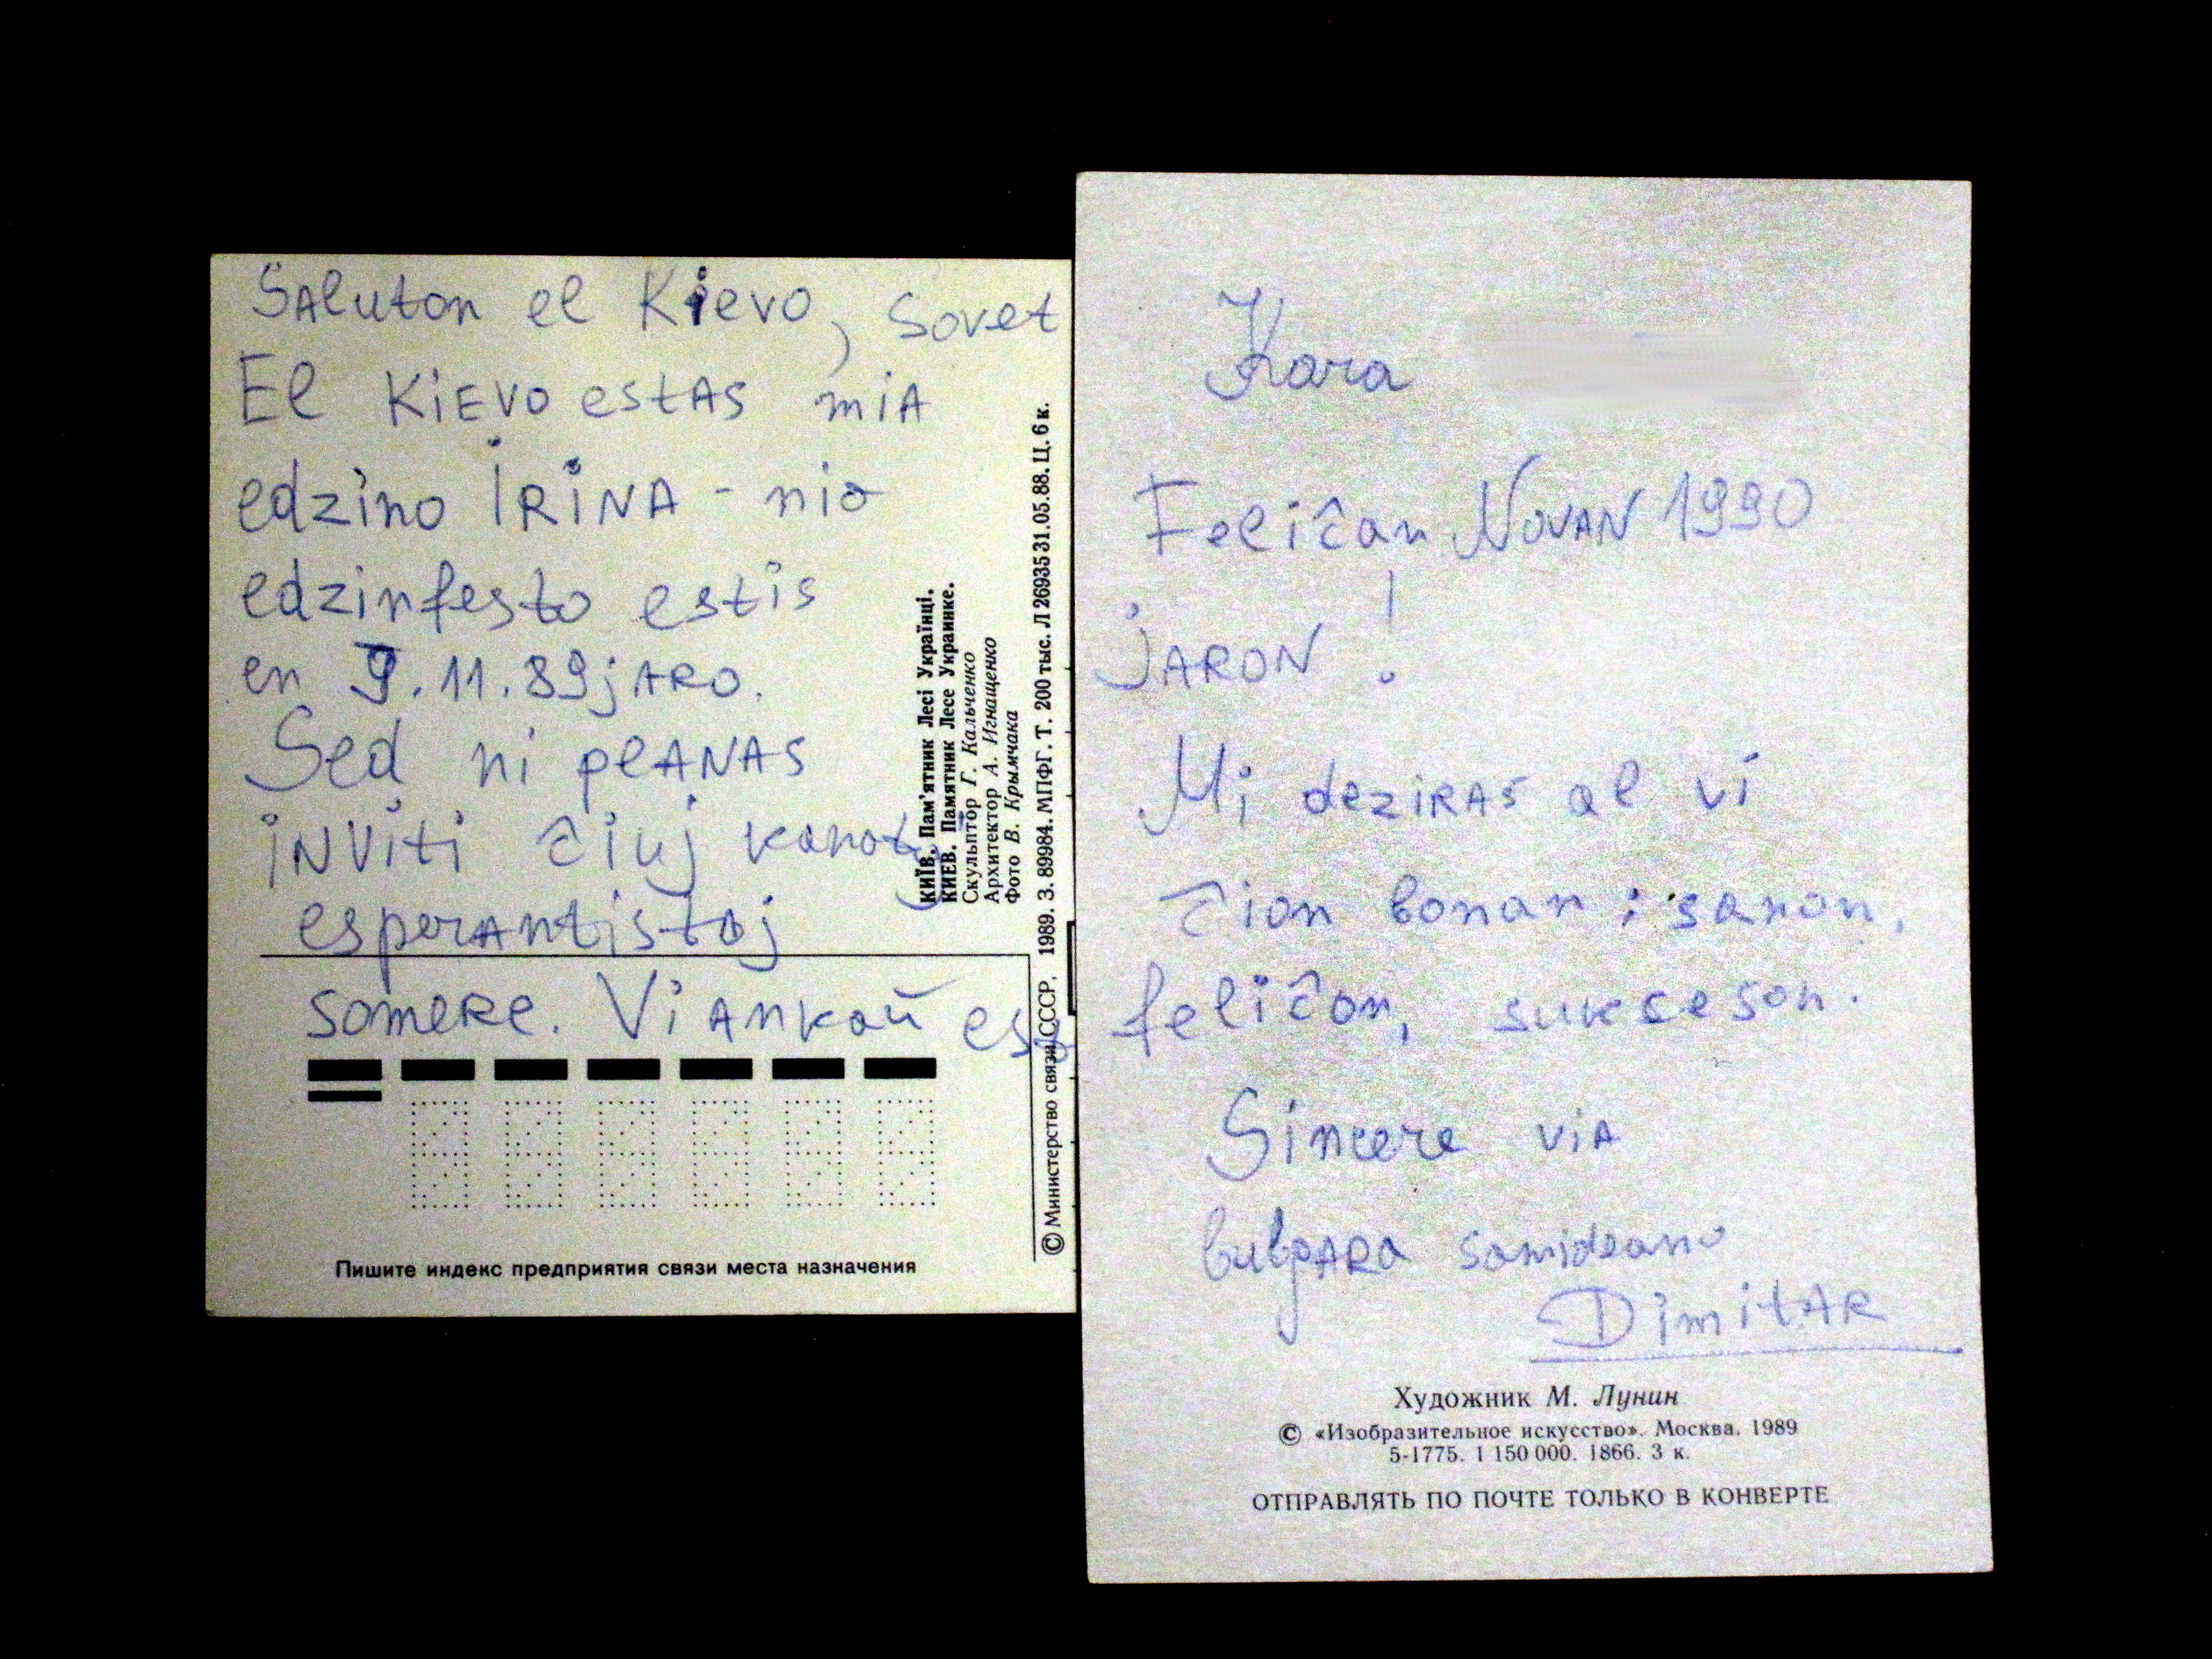 Saluton el Kievo, Sovet
El Kievo estas mia
edzino IRINA - nia
edzinfesto estis
en 9.11.89 jaro.
Sed ni planas
inviti ĉiuj
esperantistoj
somere. Vi ankaŭ
КИЇВ. Пам'ятник Лесі Українці.
КИЕВ. Памятник Лесе Украинке.
Скульптор Г. Кальченко
Архитектор А. Игнащенко
Фото В. Крымчака
© Министерство связи СССР. 1989. З. 89984. МПФГ. Т. 200 тыс. Л 26935 31.05.88. Ц. 6 к.
Пишите индекс предприятия связи места назначения
Kara
Feliĉan Novan 1990
jaron!
Mi deziras al vi
ĉion bonan: sanon,
feliĉon, sukseson.
Sincere via
bulgara samideano
Dimitar
Художник М. Лунин
© «Изобразительное искусство». Москва. 1989
5-1775. 1 150 000. 1866. 3 к.
ОТПРАВЛЯТЬ ПО ПОЧТЕ ТОЛЬКО В КОНВЕРТЕ